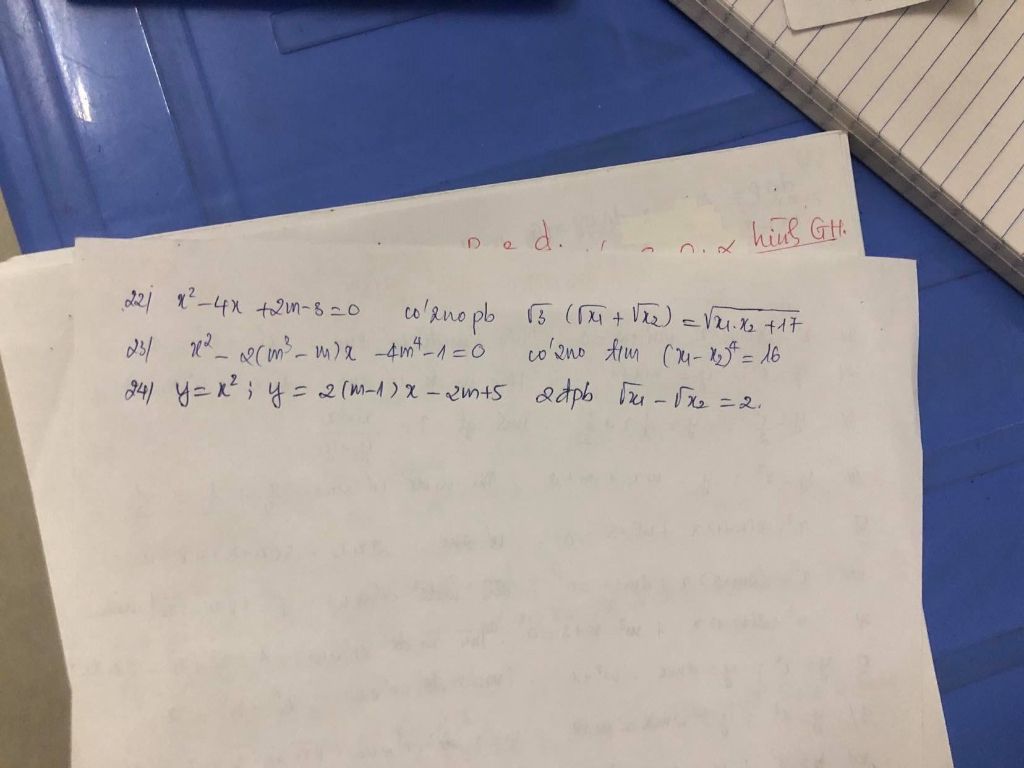 hình GH.
22/ x² - 4x + 2m - 3 = 0 có 2no pb √3 (√x₁ + √x₂) = √(x₁.x₂ + 17)
23/ x² - 2(m³ - m)x - 4m⁴ - 1 = 0 có 2no tìm (x₁ - x₂)⁴ = 16
24/ y = x² ; y = 2(m-1)x - 2m + 5 2đpb √x₁ - √x₂ = 2.